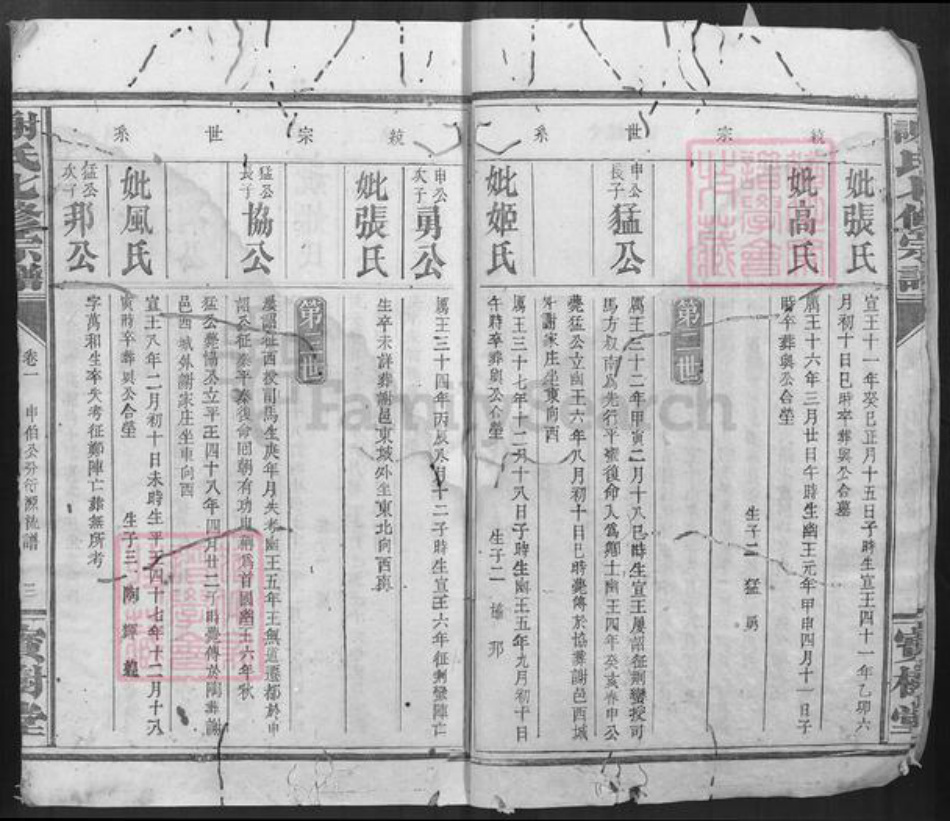 統宗世系
妣張氏
宣王十一年癸巳正月十五日子時生宣王四十一年乙卯六
月初十日巳時卒葬與公合墓
妣高氏
厲王十六年三月廿日午時生幽王元年甲申四月十一日子
時卒葬與公合塋
生子二 猛 勇
第二世
申公長子猛公
厲王三十二年甲寅二月十八巳時生宣王屢詔征荊蠻授司
馬方叔南為先行平蠻復命入為卿士幽王四年癸亥春申公
薨猛公立幽王六年八月初十日巳時薨傳於協葬謝邑西城
外謝家庄坐東向西
妣姬氏
厲王三十七年十二月十八日子時生幽王五年九月初十日
午時卒葬與公合塋
生子二 協 邦
統宗世系
申公次子勇公
厲王三十四年丙辰八月十二子時生宣王六年征荊蠻陣亡
妣張氏
生卒未詳葬謝邑東城外坐東北向西南
第三世
猛公長子協公
屢詔征西授司馬生庚年月失考幽王五年王無道遷都於申
詔公征秦平秦復命回朝有功申朝為首國幽王六年秋
猛公薨協公立平王四十八年四月廿二子時薨傳於陶葬謝
邑西城外謝家庄坐東向西
妣風氏
宣王八年二月初十日未時生平王四十七年十二月十八
寅時卒葬與公合塋
生子三 陶 輝
猛公次子邦公
字萬和生卒失考征鄭陣亡葬無所考
謝氏七修宗譜
卷一
申伯公分衍源流譜
三
寶樹堂
謝氏七修宗譜
寶樹堂
FamilySearch